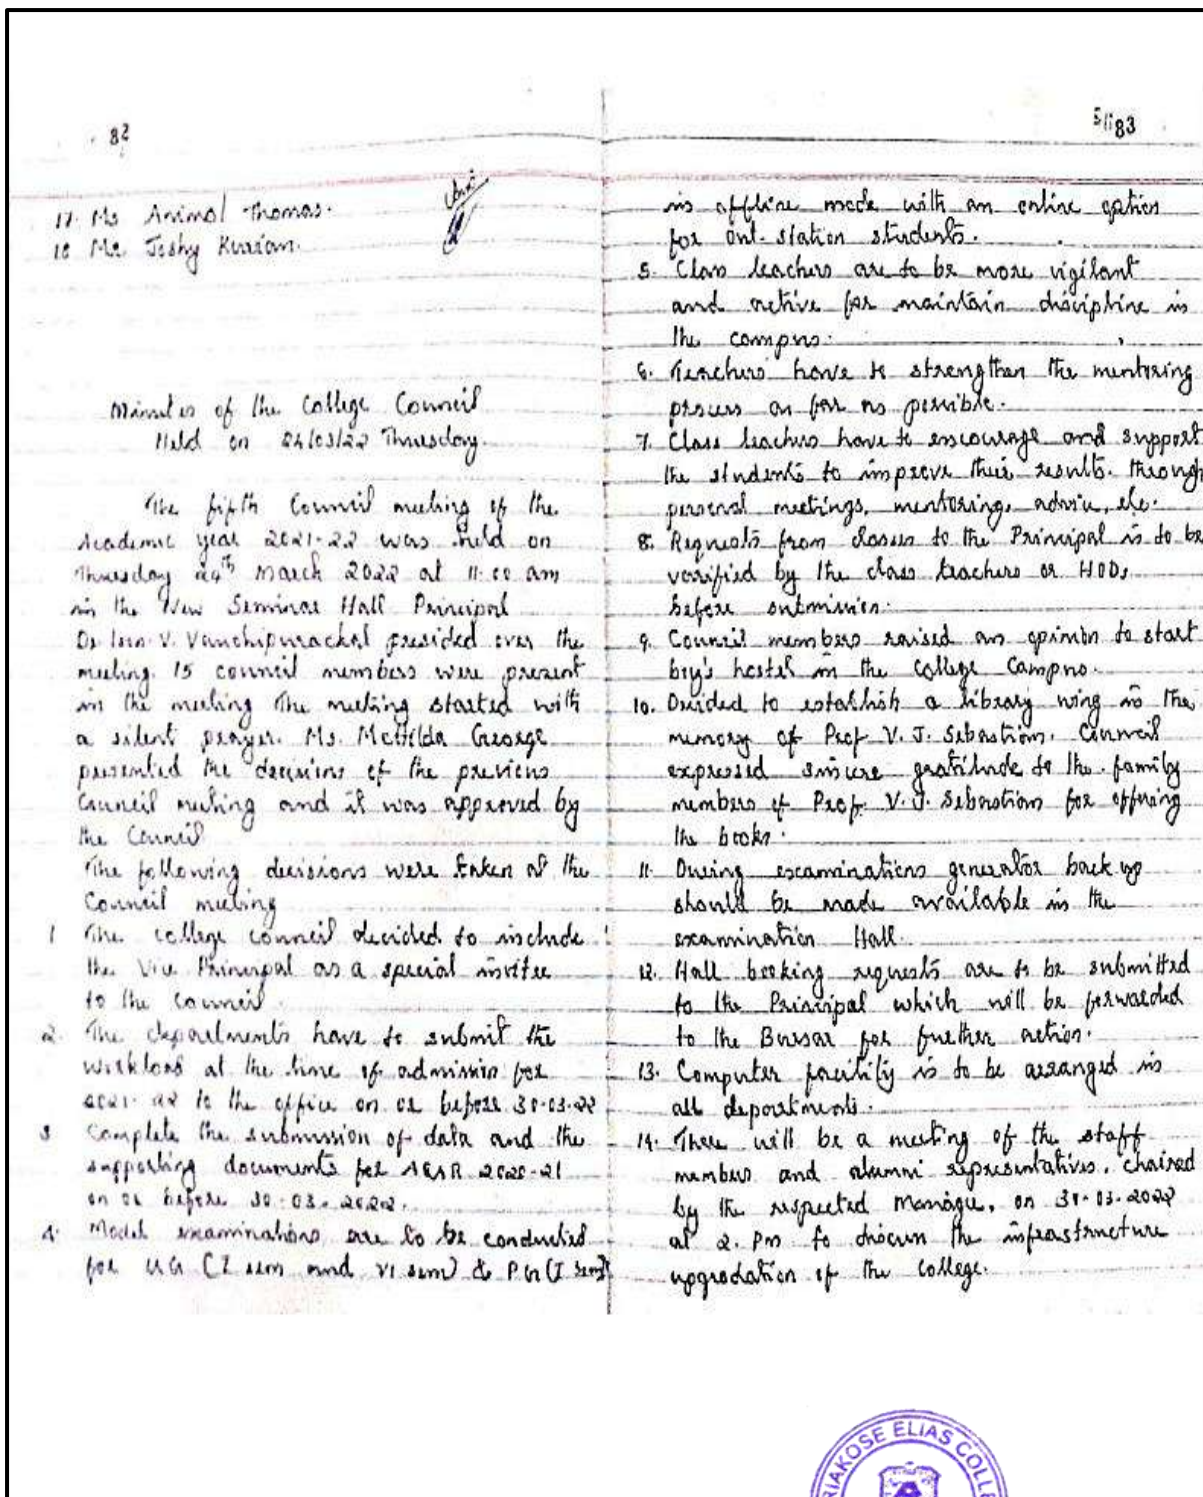 82
17. Ms Animol Thomas.
18 Mr. Joshy Kurian.
Minutes of the College Council
Held on 24/03/22 Thursday.
The fifth Council meeting of the
Academic year 2021-22 was held on
Thursday 24th March 2022 at 11.00 am
in the New Seminar Hall Principal
Dr. V. Vanchipurackal presided over the
meeting. 15 council members were present
in the meeting The meeting started with
a silent prayer. Ms. Metilda George
presented the decisions of the previous
Council meeting and it was approved by
the Council
The following decisions were taken at the
Council meeting
1 The college council decided to include
the Vice Principal as a special invitee
to the council.
2. The departments have to submit the
workload at the time of admission for
2021-22 to the office on or before 30-03-22
3 Complete the submission of data and the
supporting documents for AQAR 2020-21
on or before 30-03-2022.
4. Model examinations are to be conducted
for UG ( sem and VI sem) & PG (I sem)
83
in offline mode with an online option
for out-station students.
5. Class teachers are to be more vigilant
and active for maintain discipline in
the campus.
6. Teachers have to strengthen the mentoring
process as far as possible.
7. Class teachers have to encourage and support
the students to improve their results. through
personal meetings, mentoring, advice, etc.
8. Requests from classes to the Principal is to be
verified by the class teachers or HODs
before submission.
9. Council members raised an opinion to start
boy's hostel in the College Campus.
10. Decided to establish a library wing in the
memory of Prof V. J. Sebastian. Council
expressed sincere gratitude to the family
members of Prof. V. J. Sebastian for offering
the books.
11. During examinations generator back up
should be made available in the
examination Hall.
12. Hall booking requests are to be submitted
to the Principal which will be forwarded
to the Bursar for further action.
13. Computer facility is to be arranged in
all departments.
14. There will be a meeting of the staff
members and alumni representatives, chaired
by the respected Manager, on 30-03-2022
at 2. Pm to discuss the infrastructure
upgradation of the college.
RIAKOSE ELIAS COLLE